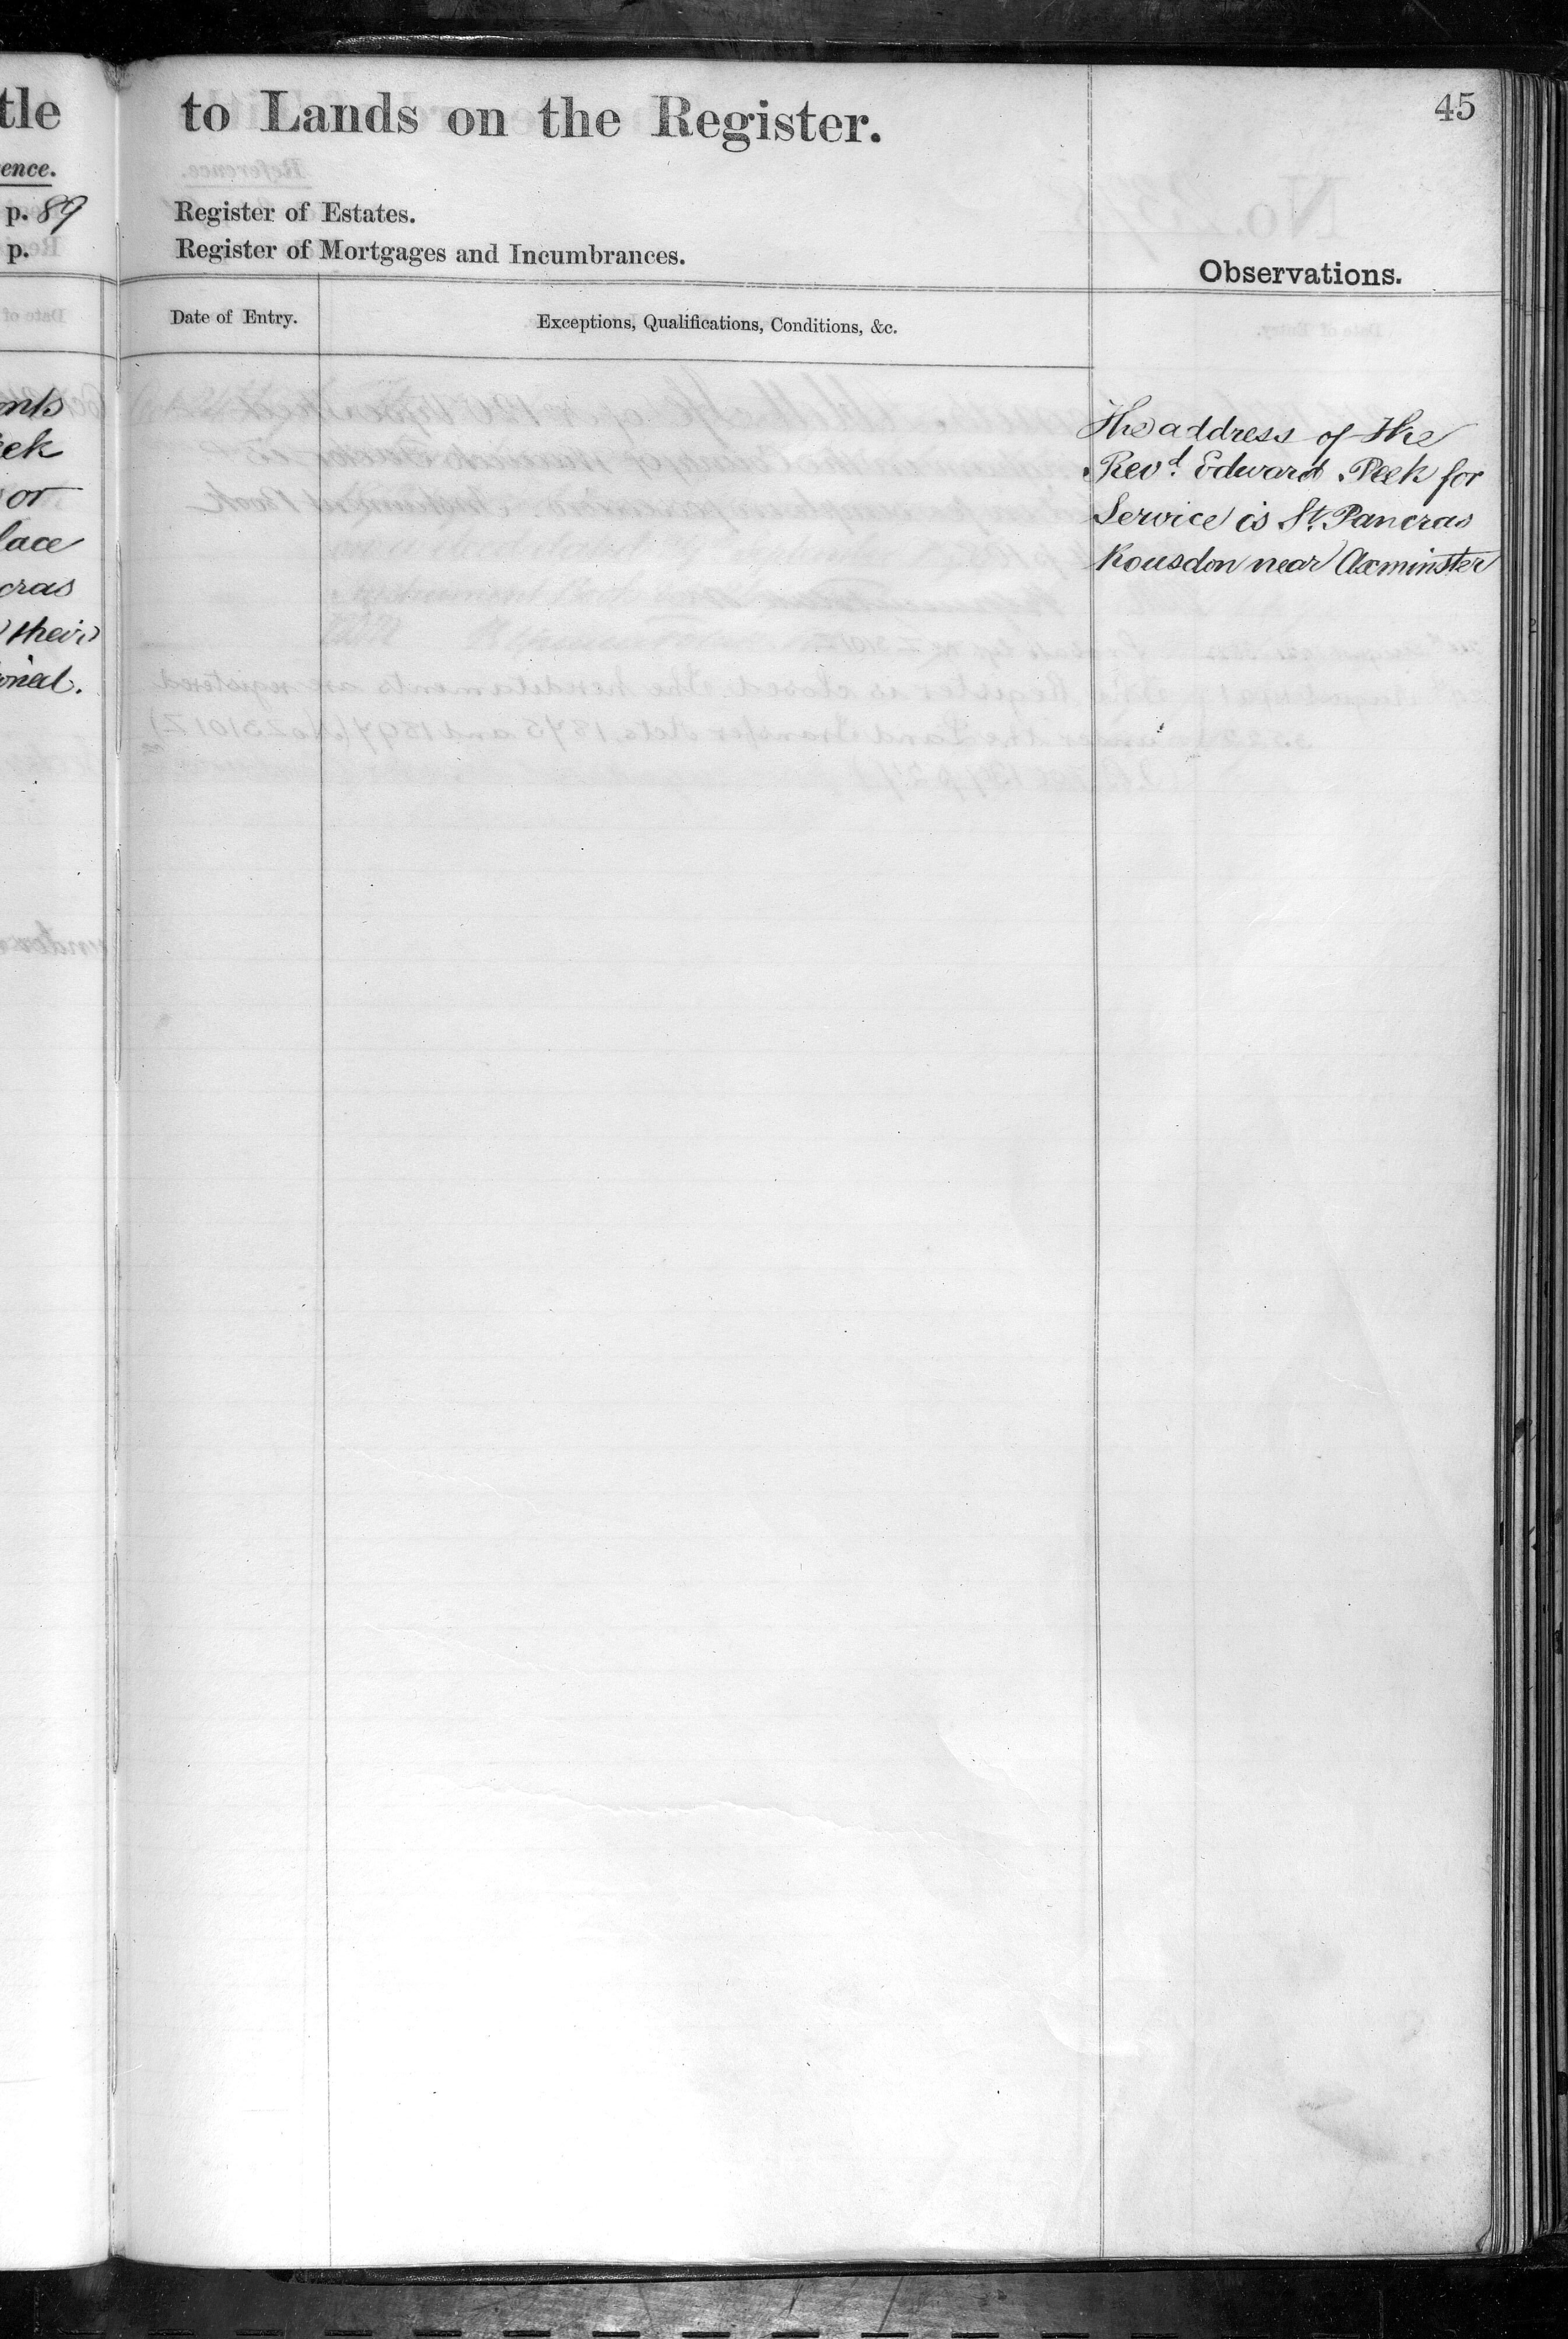 tle
ence.
p. 89
p.
onts
eek
or
lace
cras
their
oned.
to Lands on the Register.
45
Register of Estates.
Register of Mortgages and Incumbrances.
Observations.
Date of Entry.
Exceptions, Qualifications, Conditions, &c.
The address of the
Revd. Edward Peek for
Service is St. Pancras
Rousdon near Axminster